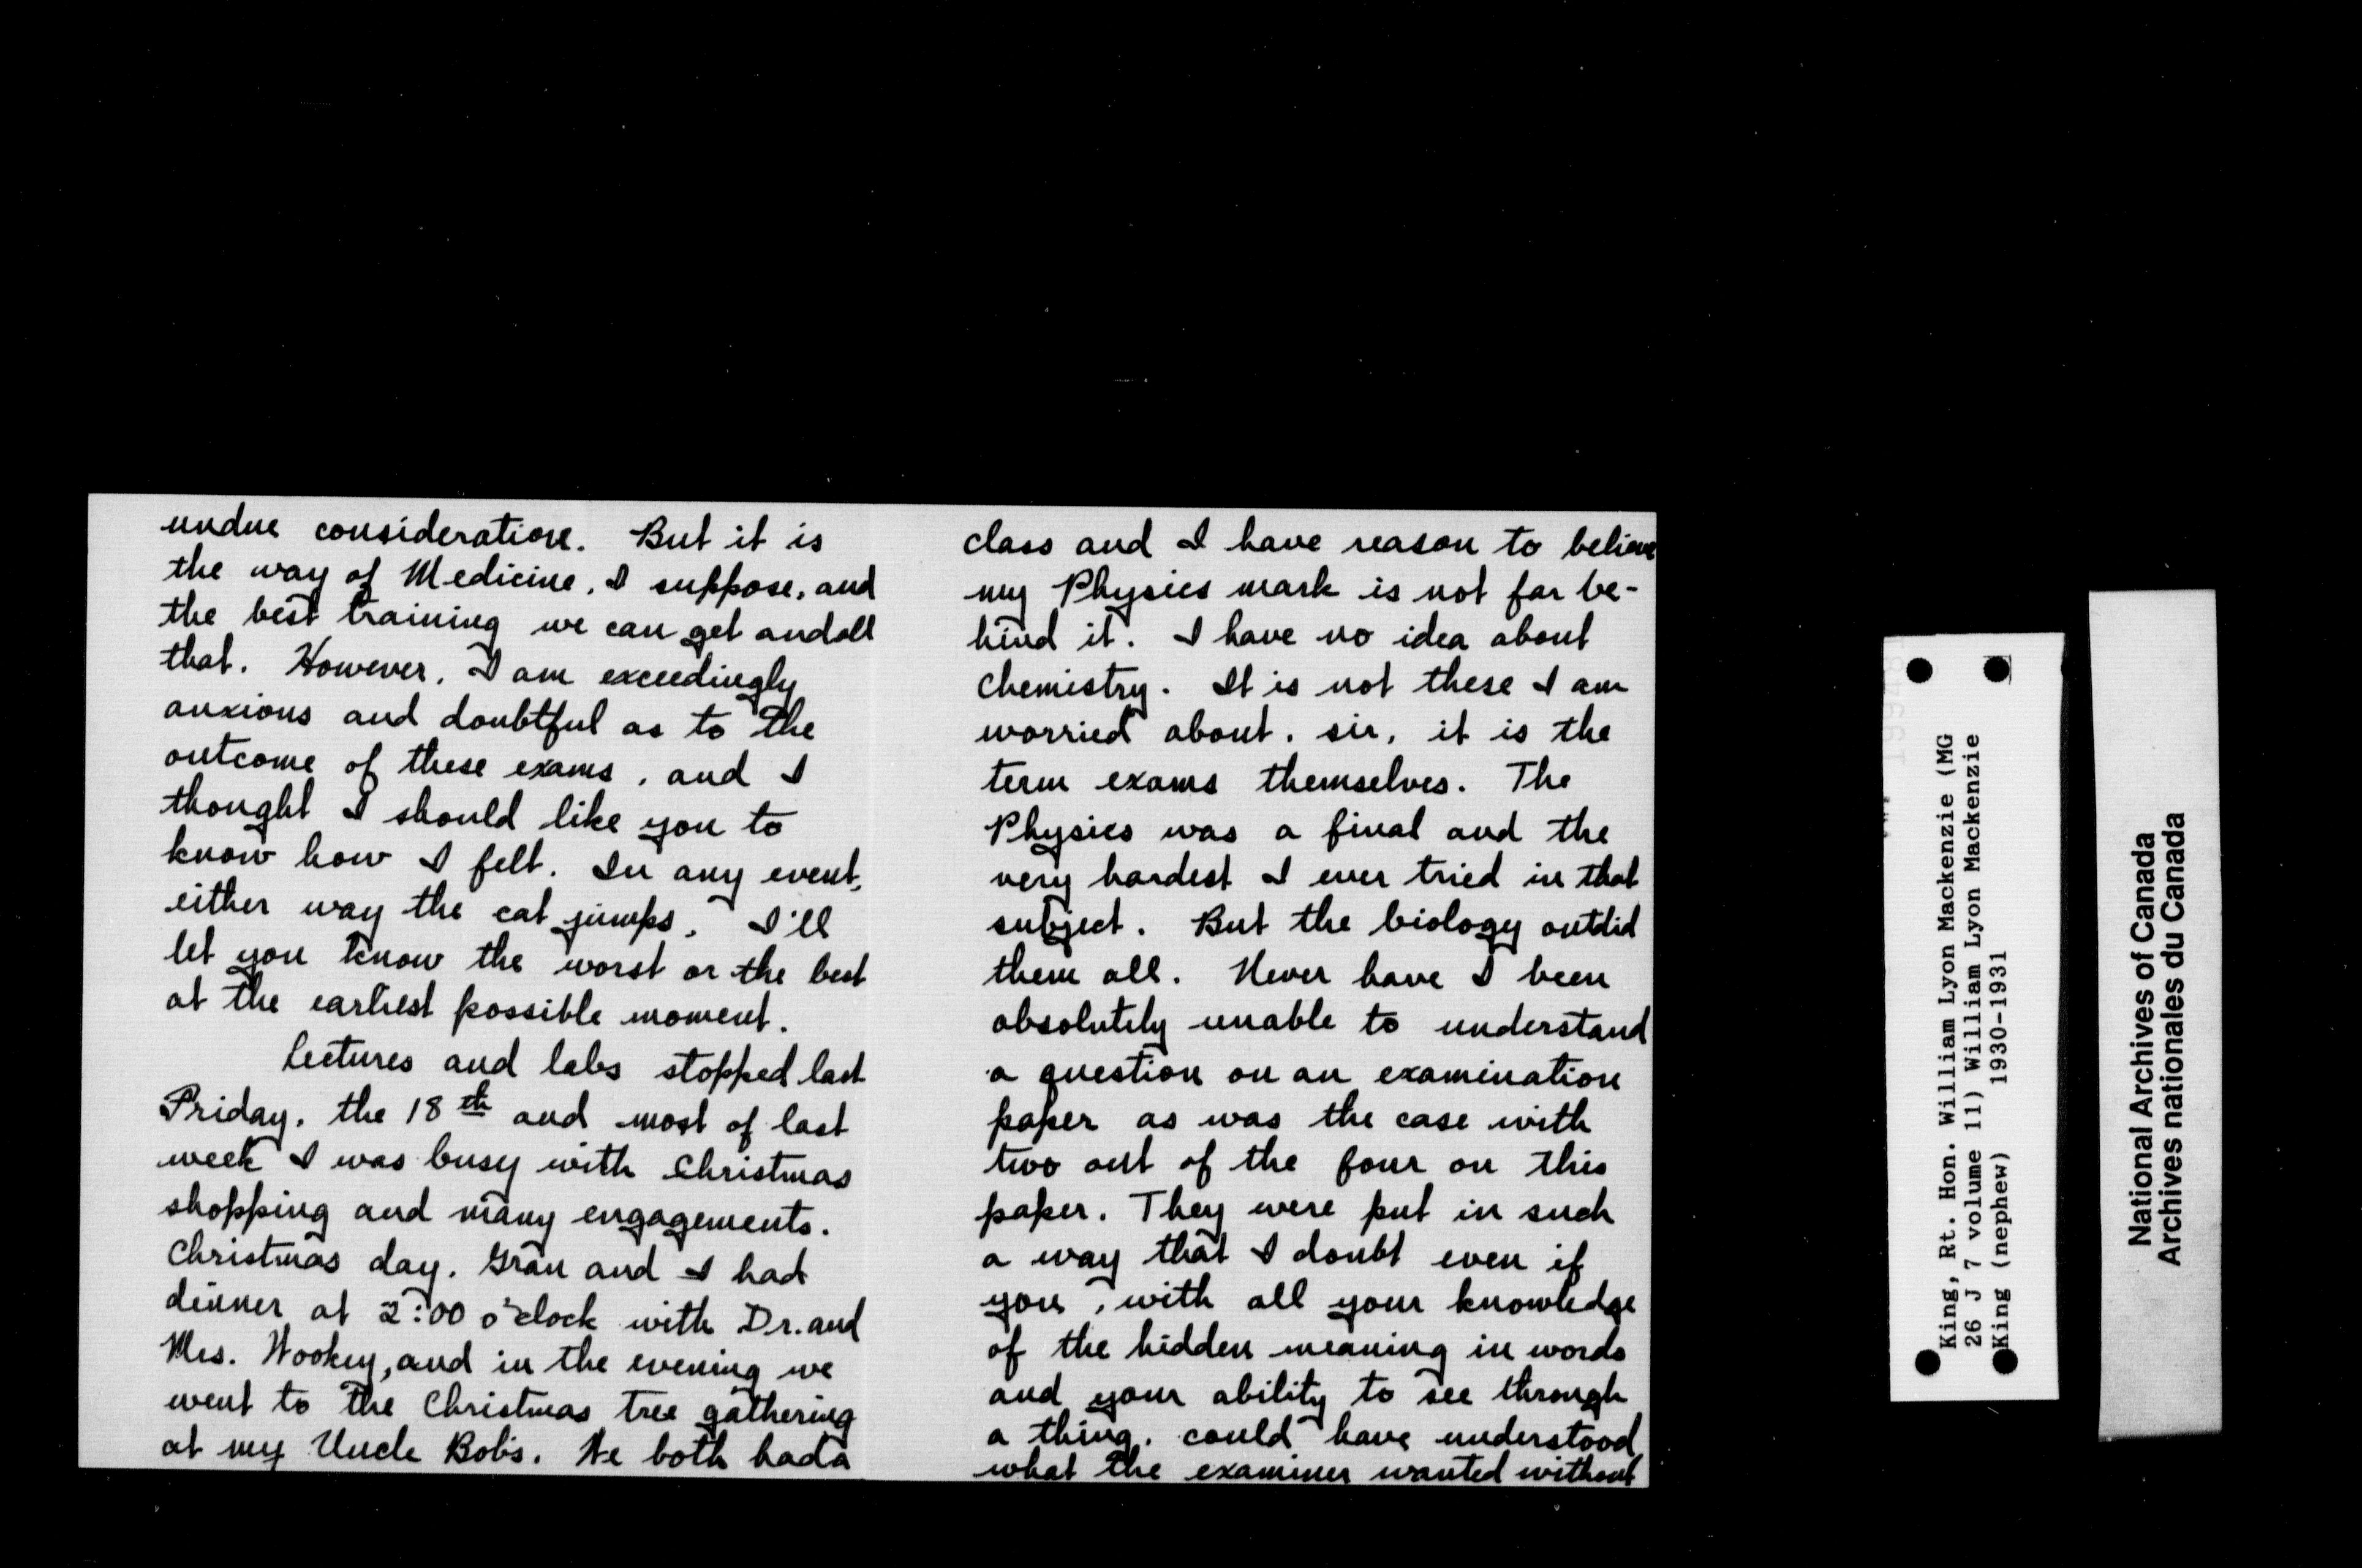 undue consideration. But it is
the way of Medicine, I suppose, and
the best training we can get and all
that. However, I am exceedingly
anxious and doubtful as to the
outcome of these exams, and I
thought I should like you to
know how I felt. In any event,
either way the cat jumps, I'll
let you know the worst or the best
at the earliest possible moment.
Lectures and labs stopped last
Friday, the 18th and most of last
week I was busy with Christmas
shopping and many engagements.
Christmas day, Gran and I had
dinner at 2:00 o'clock with Dr. and
Mrs. Wookey, and in the evening we
went to the Christmas tree gathering
at my Uncle Bob's. We both had a
class and I have reason to believe
my Physics mark is not far be-
hind it. I have no idea about
chemistry. It is not these I am
worried about, sir, it is the
term exams themselves. The
Physics was a final and the
very hardest I ever tried in that
subject. But the biology outdid
them all. Never have I been
absolutely unable to understand
a question on an examination
paper as was the case with
two out of the four on this
paper. They were put in such
a way that I doubt even if
you, with all your knowledge
of the hidden meaning in words
and your ability to see through
a thing, could have understood
what the examiner wanted without
King, Rt. Hon. William Lyon Mackenzie (MG
26 J 7 volume 11) William Lyon Mackenzie
King (nephew) 1930-1931
National Archives of Canada
Archives nationales du Canada